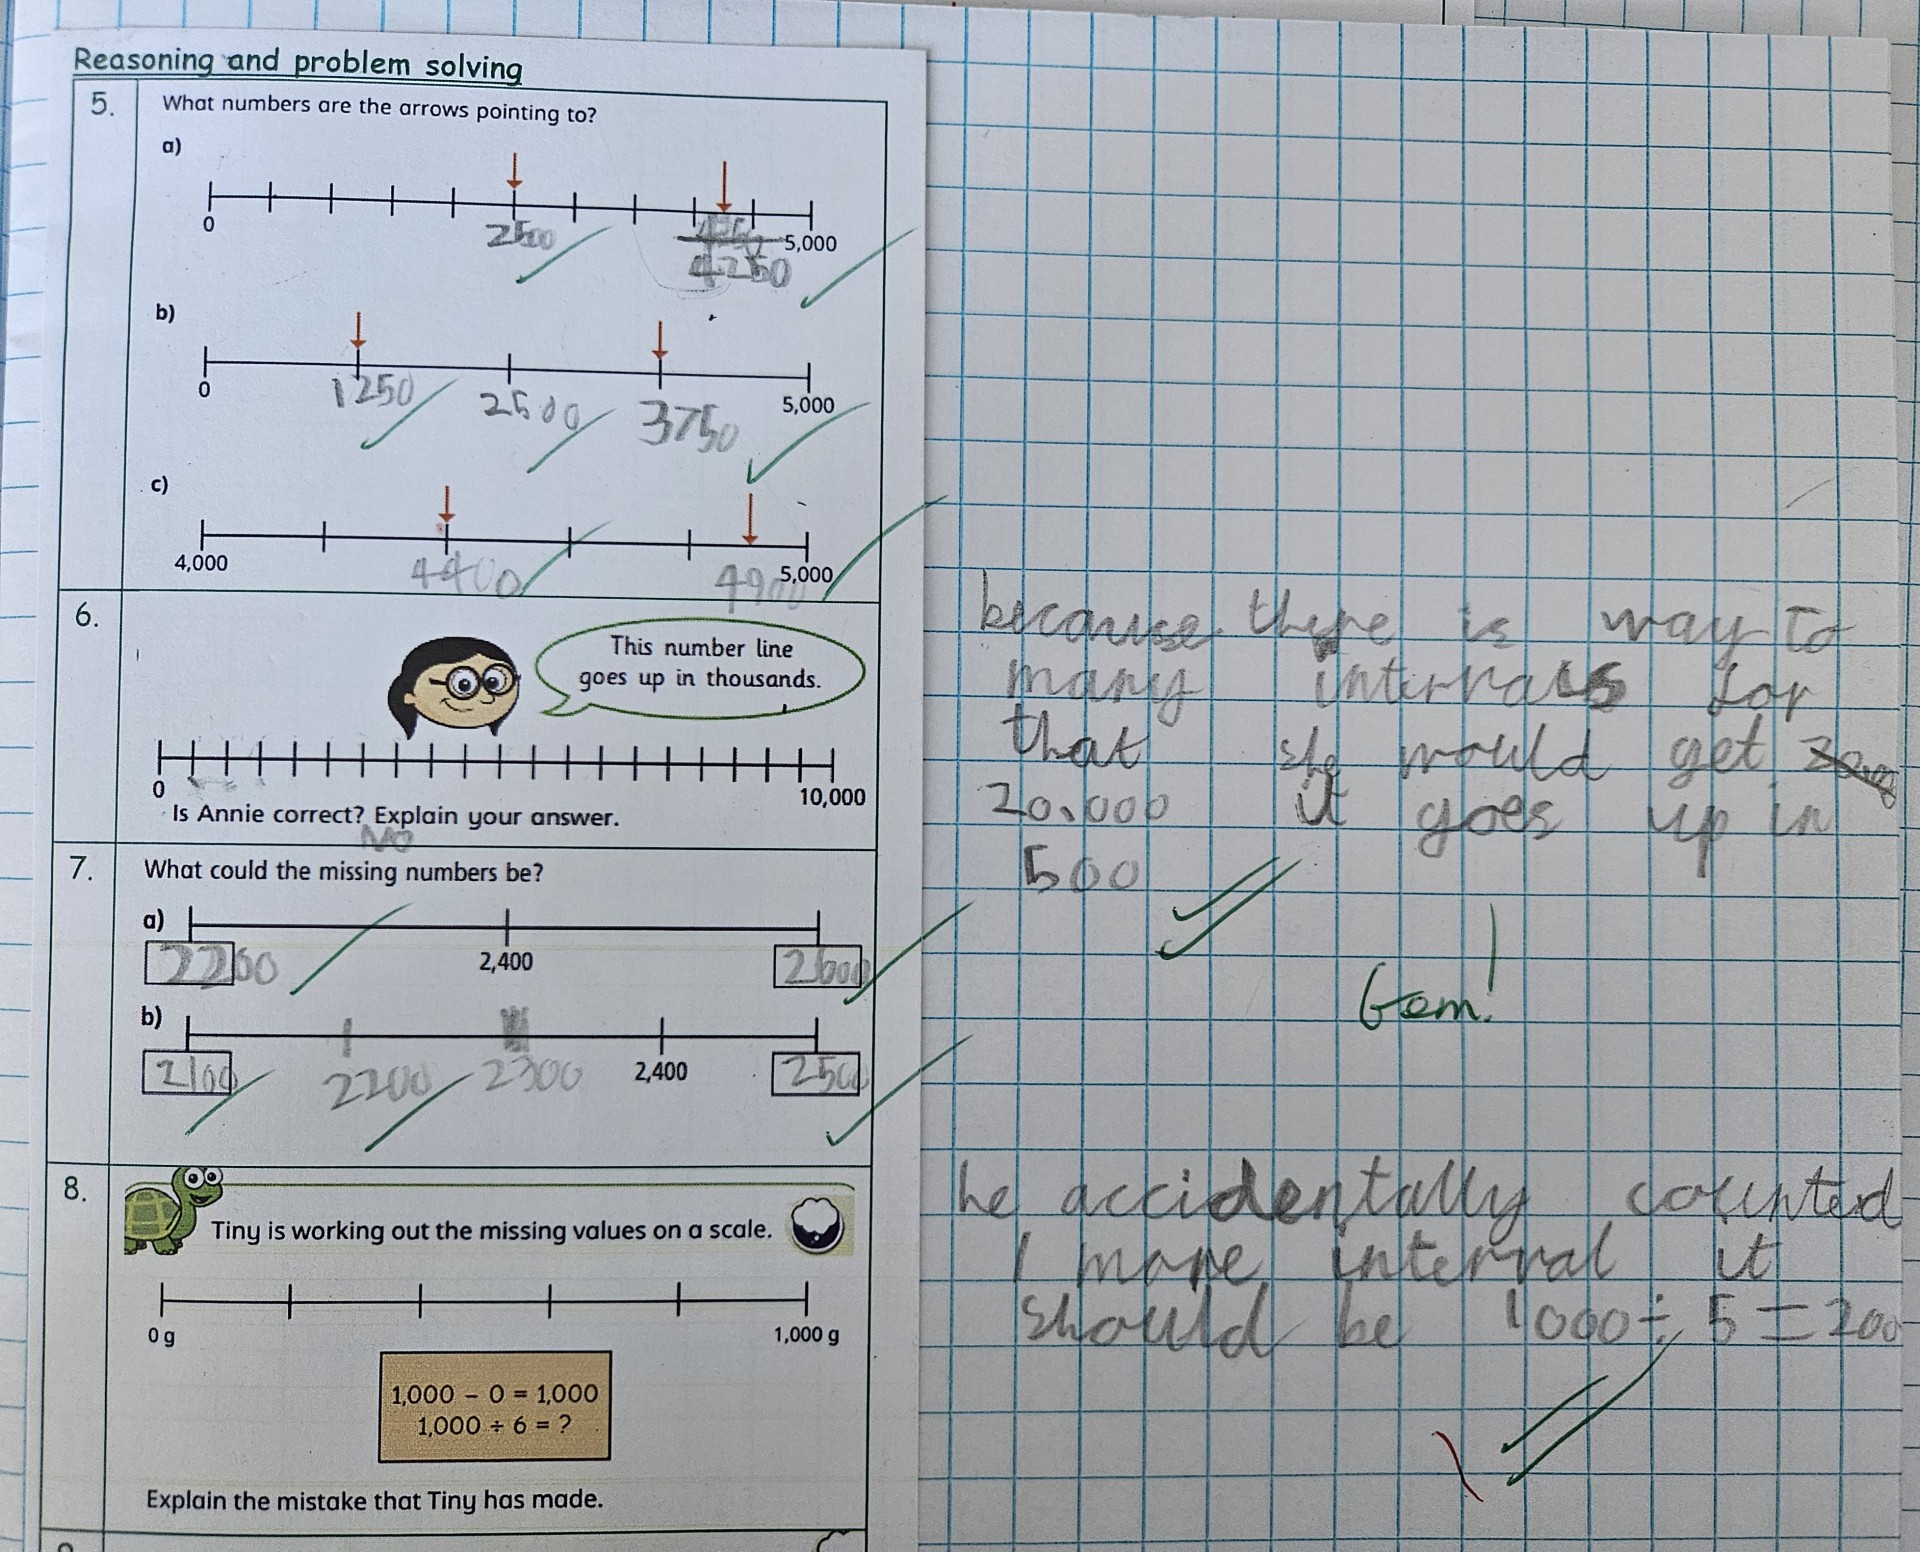 Reasoning and problem solving
5. What numbers are the arrows pointing to?
a)
0 2500 4250 5,000
b)
0 1250 2500 3750 5,000
c)
4,000 4400 4900 5,000
6. This number line
goes up in thousands.
0 10,000
Is Annie correct? Explain your answer.
No
because there is way to
many intervals for
that she would get
20.000 it goes up in
500
7. What could the missing numbers be?
a)
2200 2,400 2600
Gem!
b)
2100 2200 2300 2,400 2500
8. Tiny is working out the missing values on a scale.
0 g 1,000 g
1,000 – 0 = 1,000
1,000 ÷ 6 = ?
Explain the mistake that Tiny has made.
he accidentally counted
1 more interval it
should be 1000 ÷ 5 = 200